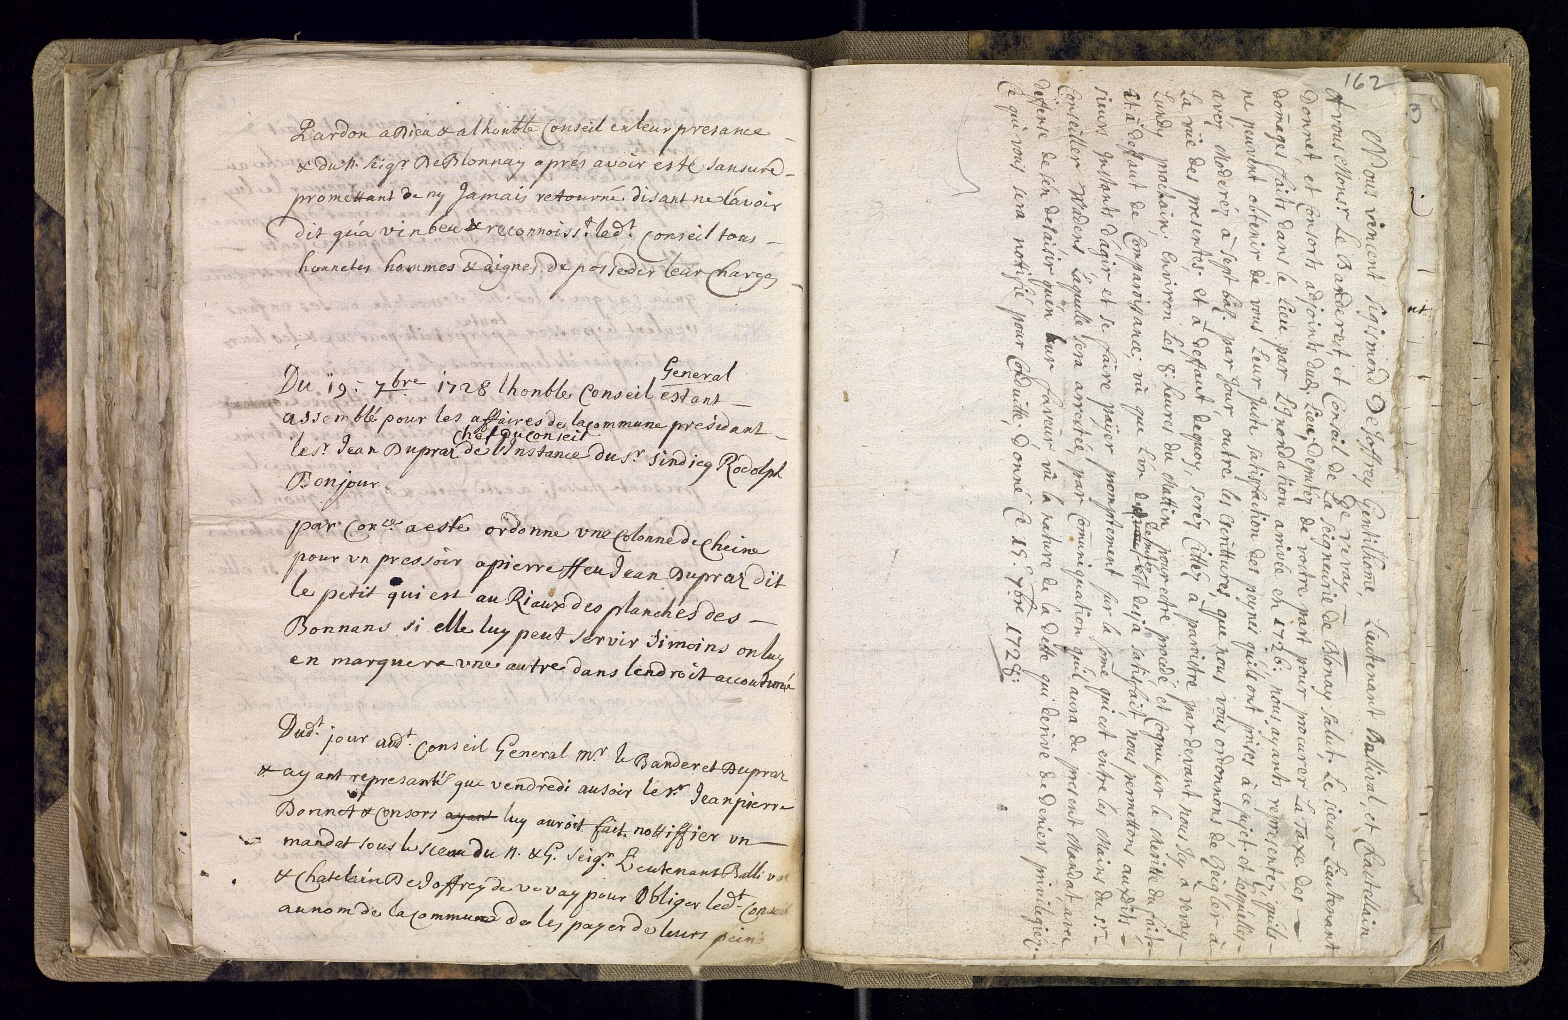 Pardon a Dieu & alhonble Conseil en leur presance
& du n. seigr De Blonnay apres avoir esté sansuré
promettant de ny Jamais retourné disant ne lavoir
dit qua vin beu & reconnoisst. ledt. Conseil tous
honnetes hommes & dignes de posseder leur charges
Du 19e 7bre 1728 lhonble Conseil General estant
assemblé pour les affaires de la commune presidant
le sr Jean Dupraz chef du conseil de l'Instance du sr. sindicq Rodolph
Bonjour
par Con
ce a esté ordonne une Colonne de Cheine
pour un pressoir a pierre ffeu Jean Dupraz dit
le petit qui est au Riaux des planches des
Bonnans si elle luy peut servir simoins on luy
en marquera une autre dans lendroit accoutumé
Dudt. jour audt. Conseil General mr. le Banderet Dupraz
ayant represanté que vendredi au soir le sr Jean pierre
Donnet & consors ayant luy auroit fait nottiffier un
mandat sous le sceau du N. & G. Seigr. Lieutenant Ballival
& Chatelain De Joffrey de vevay pour Obliger ledt. Conseil
au nom de la commune de les payer de leurs peine
162
Nous vincent sigismond De Joffrey Gentillome Lieutenant Ballival, et Chastelain
De vevay
A vous Monsr. Le Banderet et Conseil de La seigneurie de Blonay salut. Le sieur Lieutenant
Donnet, et Consorts adjoints aud. Députez de votre part pour procurer La Taxe des
domages faits dans le Lieu par L'Inondation arrivée en 1726. nous ayants representéz qu'ils
ne peuvent obtenir de vous leur juste satisfaction des peynes qu'ils ont prises à ce sujet et lesquelles
avez moderéz à sept bz. par Jour, outre les ecrittures, que nous vous ordonnons de Regler à
La vüe des presentes, et à deffaut dequoy serez Cittéz a paroitre par devant nous Icy à vevay
Lundy prochain, environ les 8 heures du matin pour estre procédé et Cognu sur le mérite du fait
et à defaut de Comparoissance, vû que L'un des debiteurs est deja satisfait nous permettons auxdits
sieurs Instants d'agir et se faire payer promptement sur la somme qui est entre les Mains du sr.
Conseiller Mudent, Laquelle sera arretée, par Communication qu'il aura du present Mandat avec
deffense de s'en désaisir qu'en Leur faveur vû la nature de la Dette qui derive de deniers privilegiez
Ce qui vous sera notifié pour Conduitte, Donné Ce 15e. 7bre 1728.